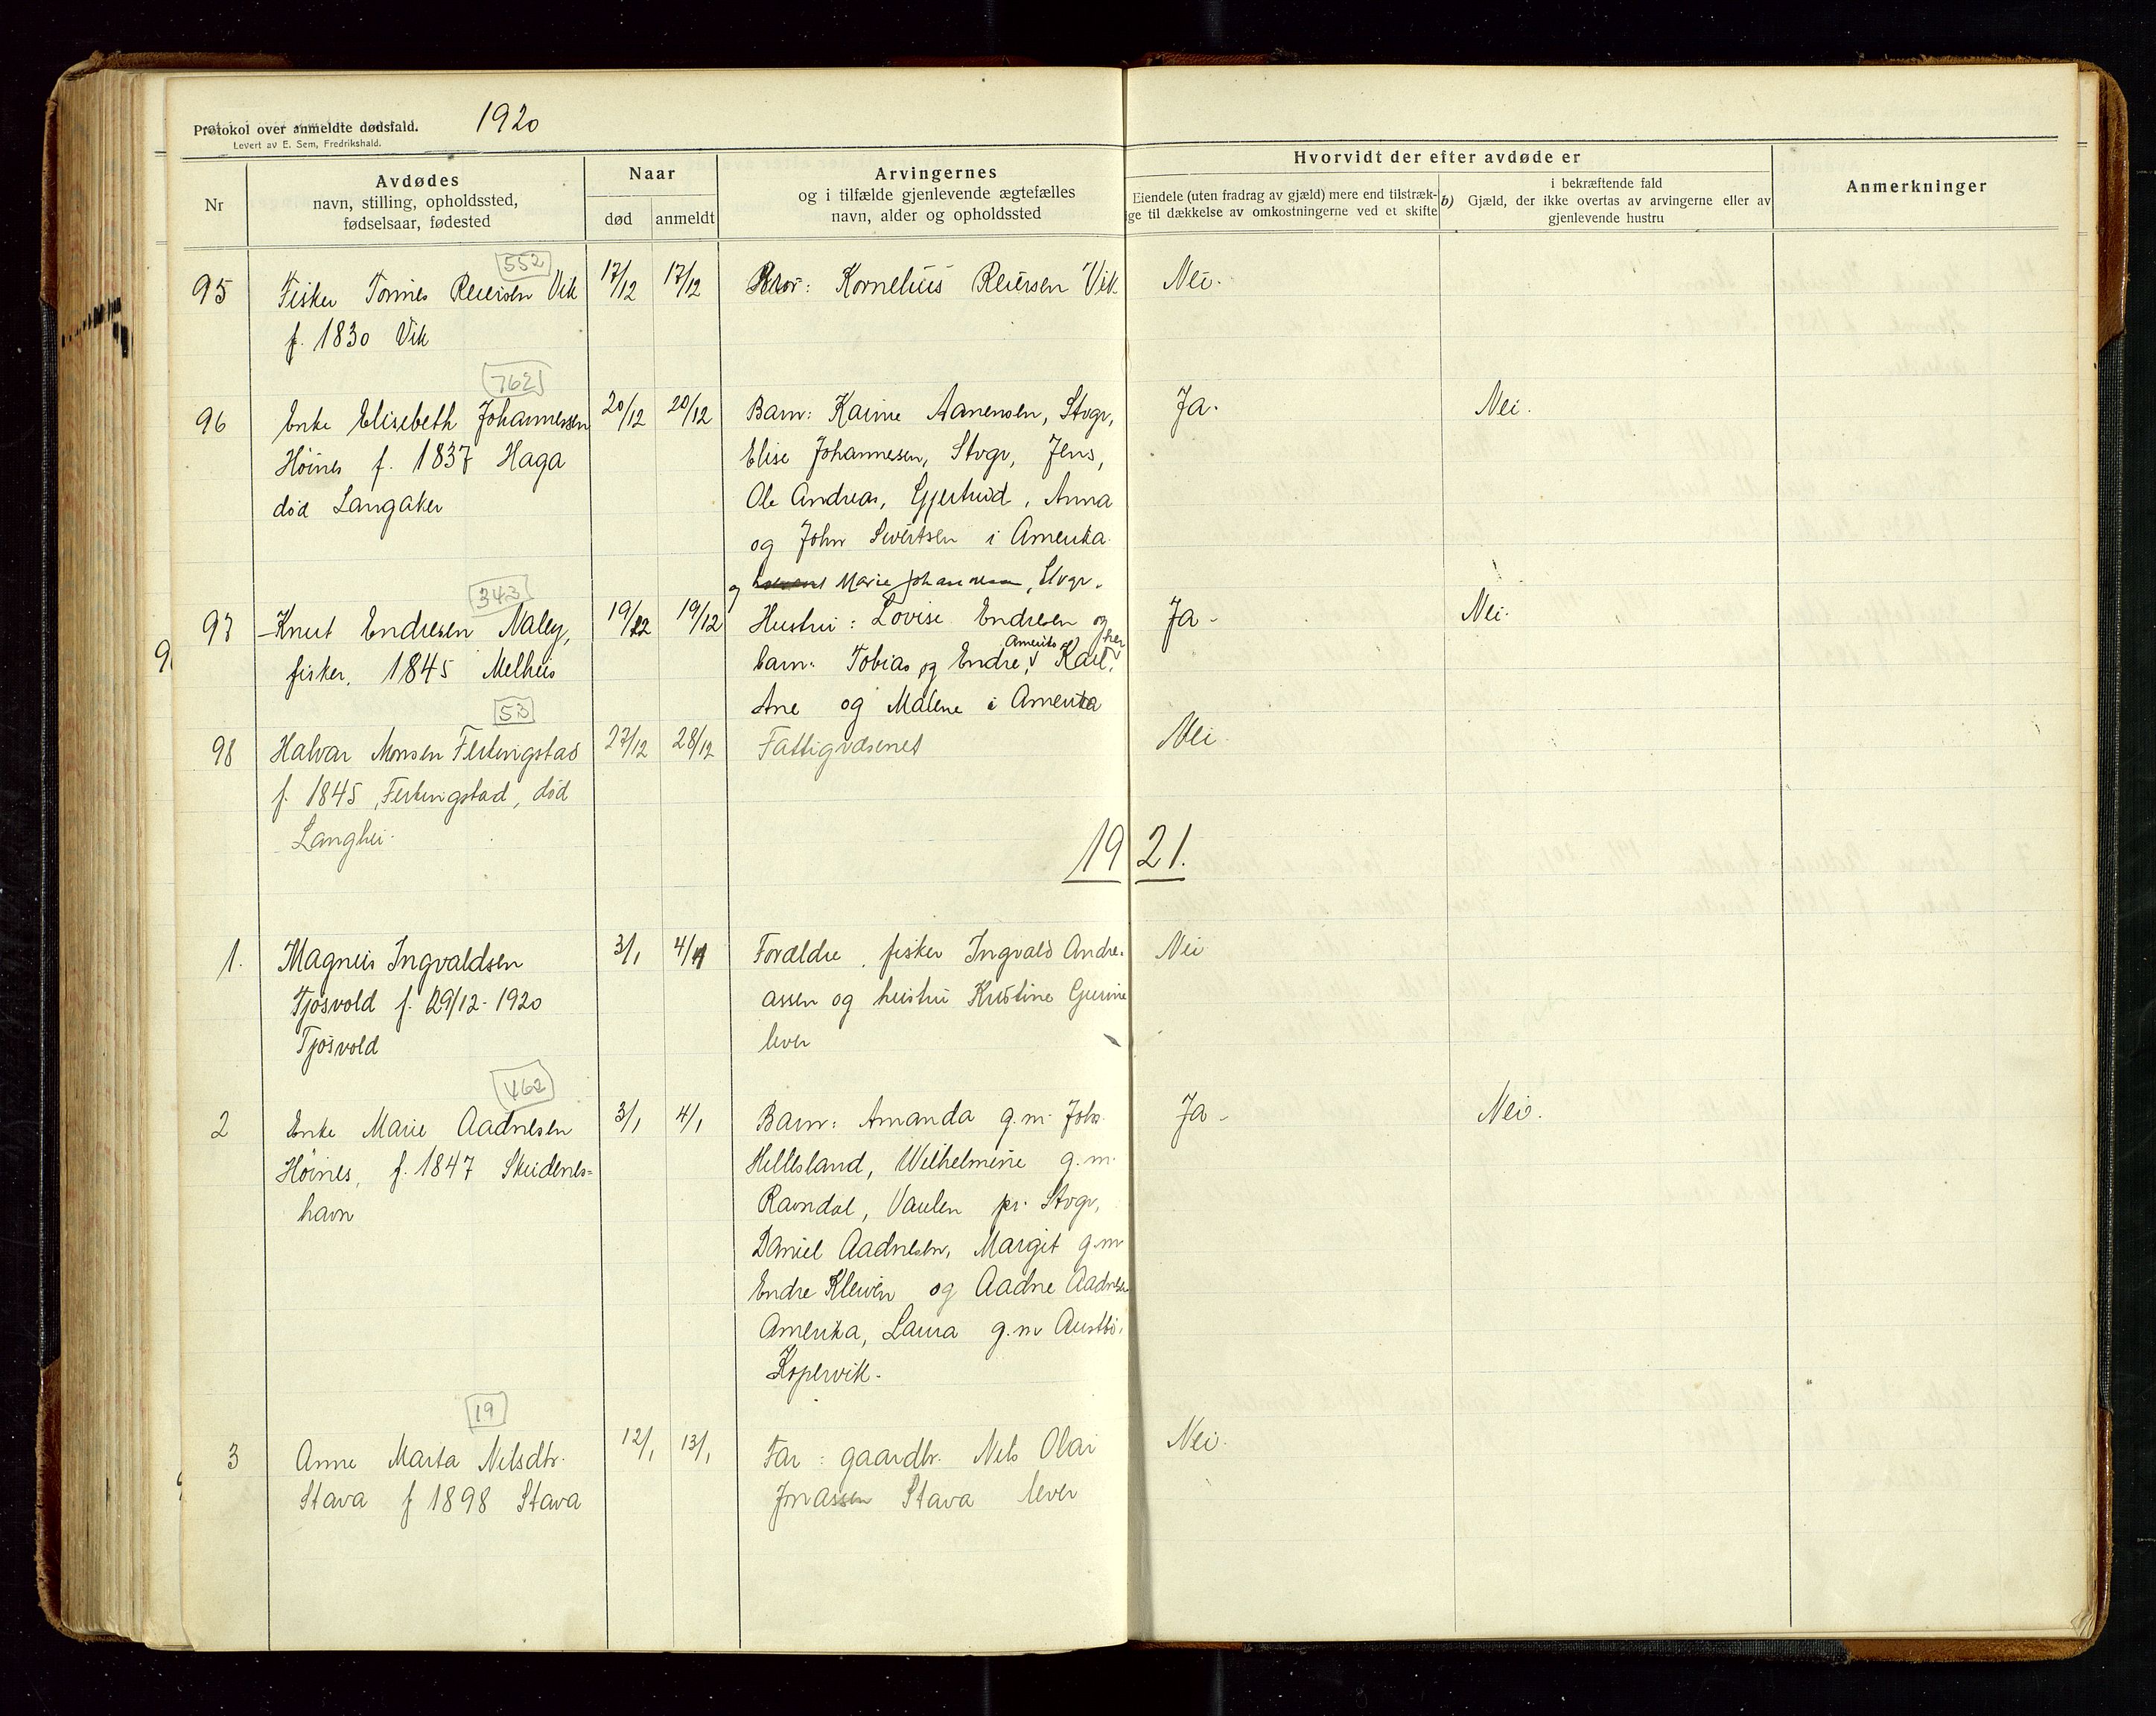 Protokol over anmeldte dødsfald. 1920
Levert av E. Sem, Fredrikshald.
Nr
Avdødes
navn, stilling, opholdssted,
fødselsaar, fødested
Naar
død anmeldt
Arvingernes
og i tilfælde gjenlevende ægtefælles
navn, alder og opholdssted
Hvorvidt der efter avdøde er
Eiendele (uten fradrag av gjæld) mere end tilstræk-
ge til dækkelse av omkostningerne ved et skifte
b) i bekræftende fald
Gjæld, der ikke overtas av arvingerne eller av
gjenlevende hustru
Anmerkninger
552
95 Fisker Tønnes Reiersen Vik 17/12 17/12 Bror: Kornelius Reiersen Vik Nei.
f. 1830 Vik
762
96 Enke Elisebeth Johannessen 20/12 20/12 Barn: Karine Aanensen, Stvgr, Ja. Nei.
Høines f. 1837 Haga Elise Johannesen, Stvgr, Jens,
død Langaker Ole Andreas, Gjertrud, Anna
og John Sivertsen i Amerika
og Marie Johannesen, Stvgr.
343
97 Knut Endresen Naley, 19/12 19/12 Hustru: Lovise Endresen og Ja - Nei.
fisker, 1845 Melhus barn: Tobias og Endre, Amerika, Karl, her
Ane og Malene i Amerika
53
98 Halvar Monsen Ferkingstad 27/12 28/12 Fattigvæsenet Nei.
f. 1845, Ferkingstad, død
Langhei.
1921.
1. Magnus Ingvaldsen 3/1 4/1 Forældre, fisker Ingvald Andre- Nei
Tjøsvold f. 29/12-1920 assen og hustru Kristine Gurine
Tjøsvold lever
462
2 Enke Marie Aadnesen 3/1 4/1 Barn: Amanda g.m. John Ja - Nei.
Høines, f. 1847 Skudenes- Hillesland, Wilhelmine g.m.
havn Ravndal, Vaulen pr. Stvgr,
Daniel Aadnesen, Margit g.m
Endre Kleiven og Aadne Aadnesen
Amerika, Laura g.m Austbø,
Kopervik.
19
3 Anne Marta Nilsdtr. 12/1 13/1 Far: gaardbr. Nils Olai Nei.
Stava f 1898 Stava Jonassen Stava lever